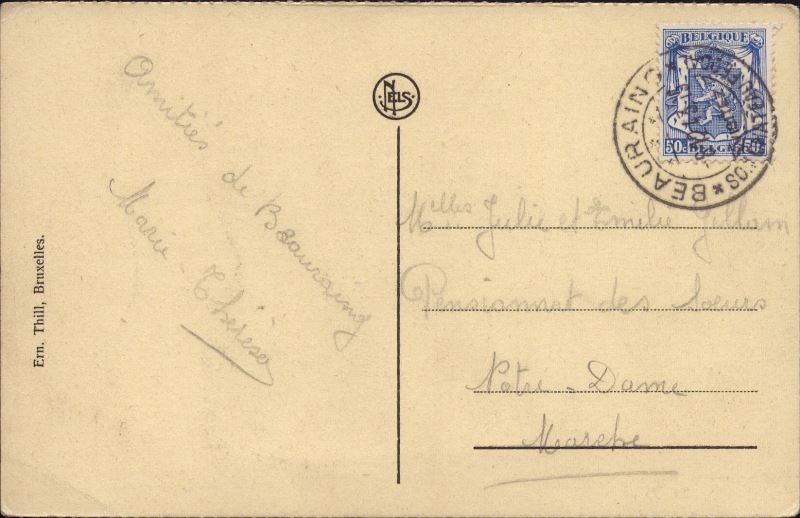 Amitiés de Beauraing
Marie Thérèse
Ern. Thill, Bruxelles.
NELS
BELGIQUE
50c BELGIË 50c
BEAURAING
Melles Julie et Emilie Gillain
Pensionnat des Sœurs
Notre-Dame
Marche